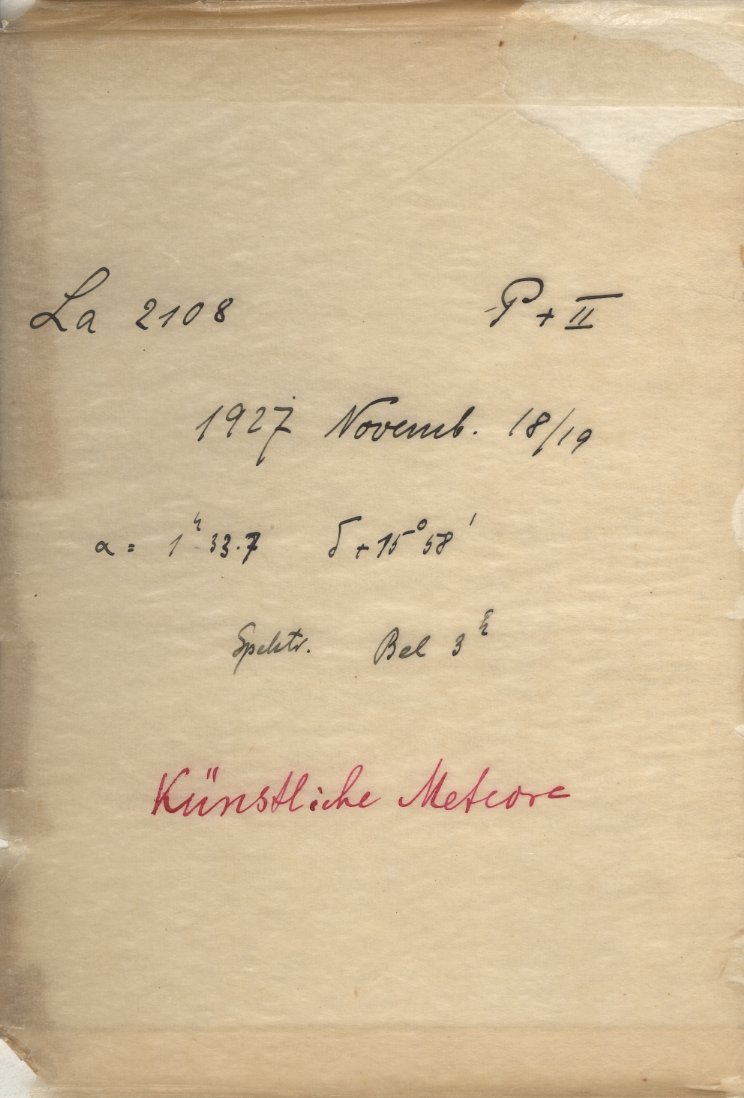 La 2108 P + II
1927 Novemb. 18/19
α = 1ʰ 33.7 δ + 15° 58'
Spektr. Bel 3ʰ
Künstliche Meteore